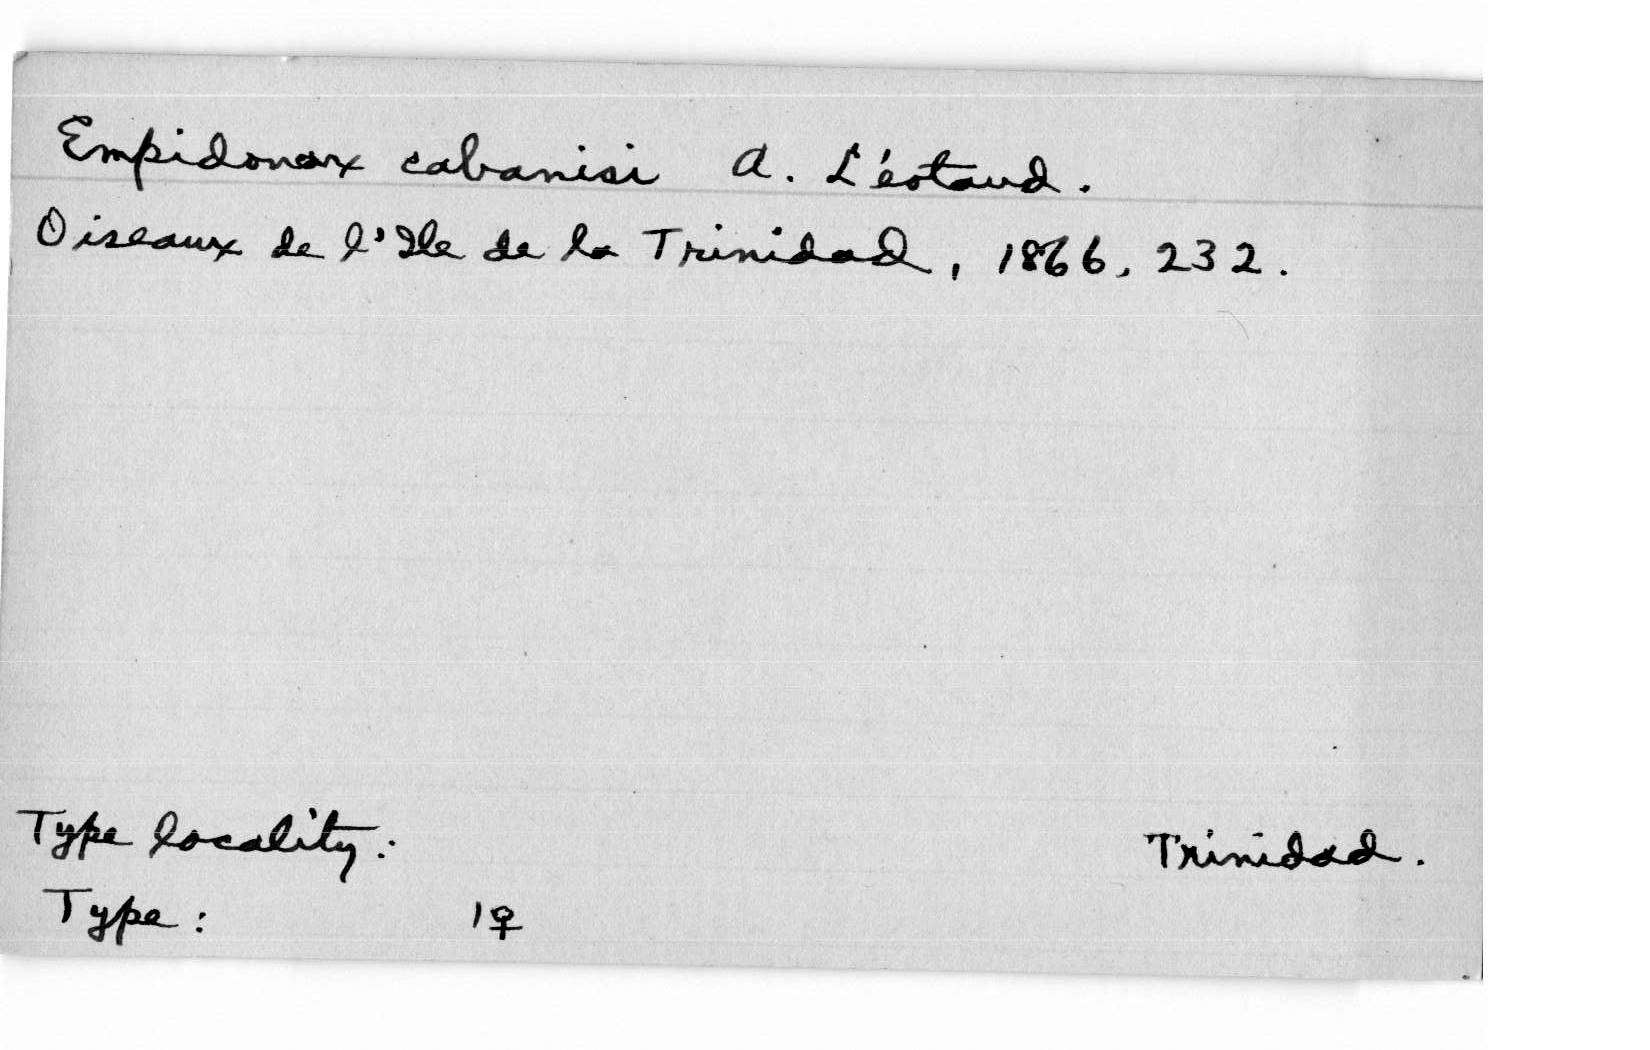 Empidonax cabanisi A. L'éotaud.
Oiseaux de l'Ile de la Trinidad, 1866, 232.
Type locality: Trinidad.
Type: 1♀